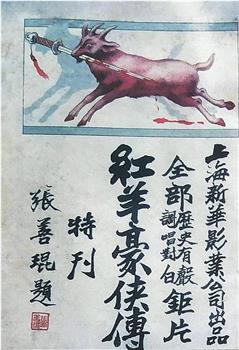 上海新華影業公司出品
全部歷史有聲調唱對白鉅片
紅羊豪俠傳
特刊
張善琨題